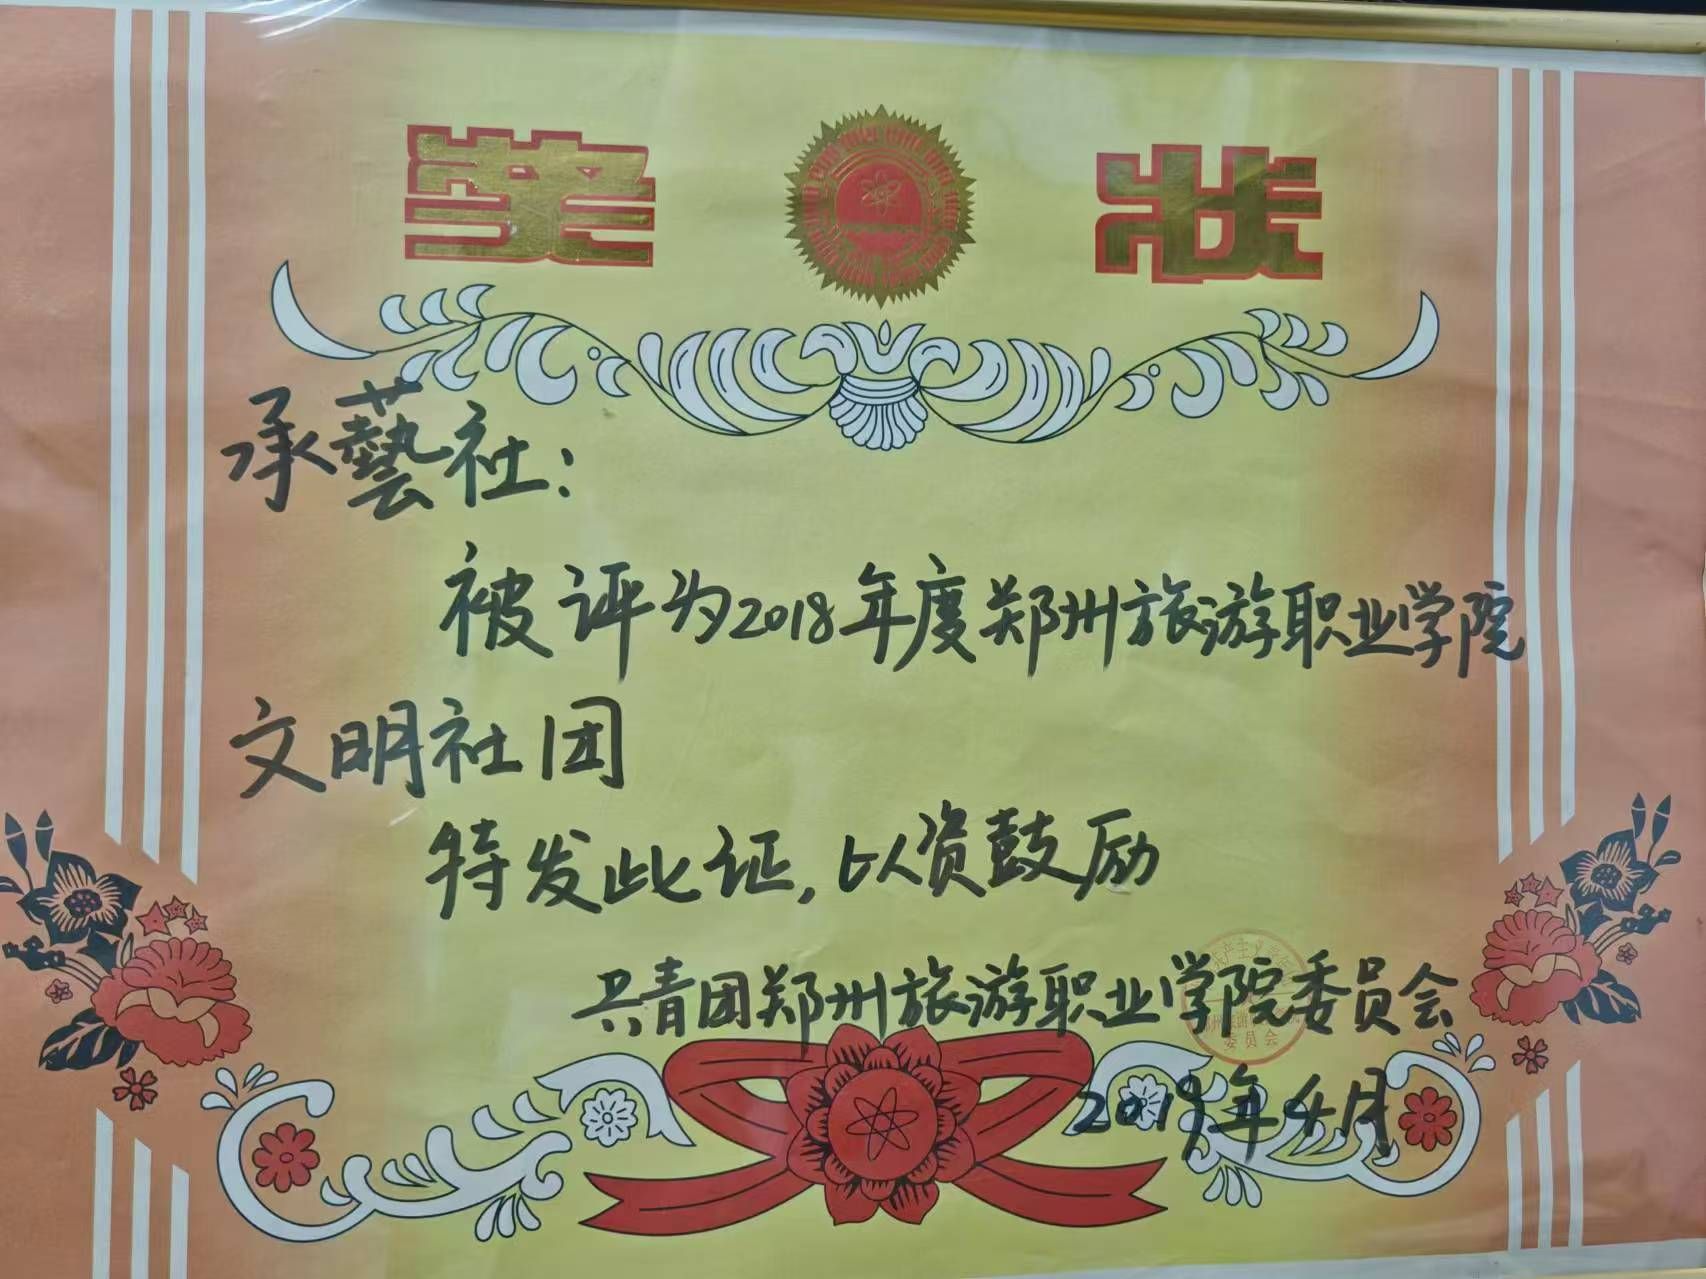 奖状
承藝社：
被评为2018年度郑州旅游职业学院
文明社团
特发此证，以资鼓励
共青团郑州旅游职业学院委员会
2019年4月
委员会